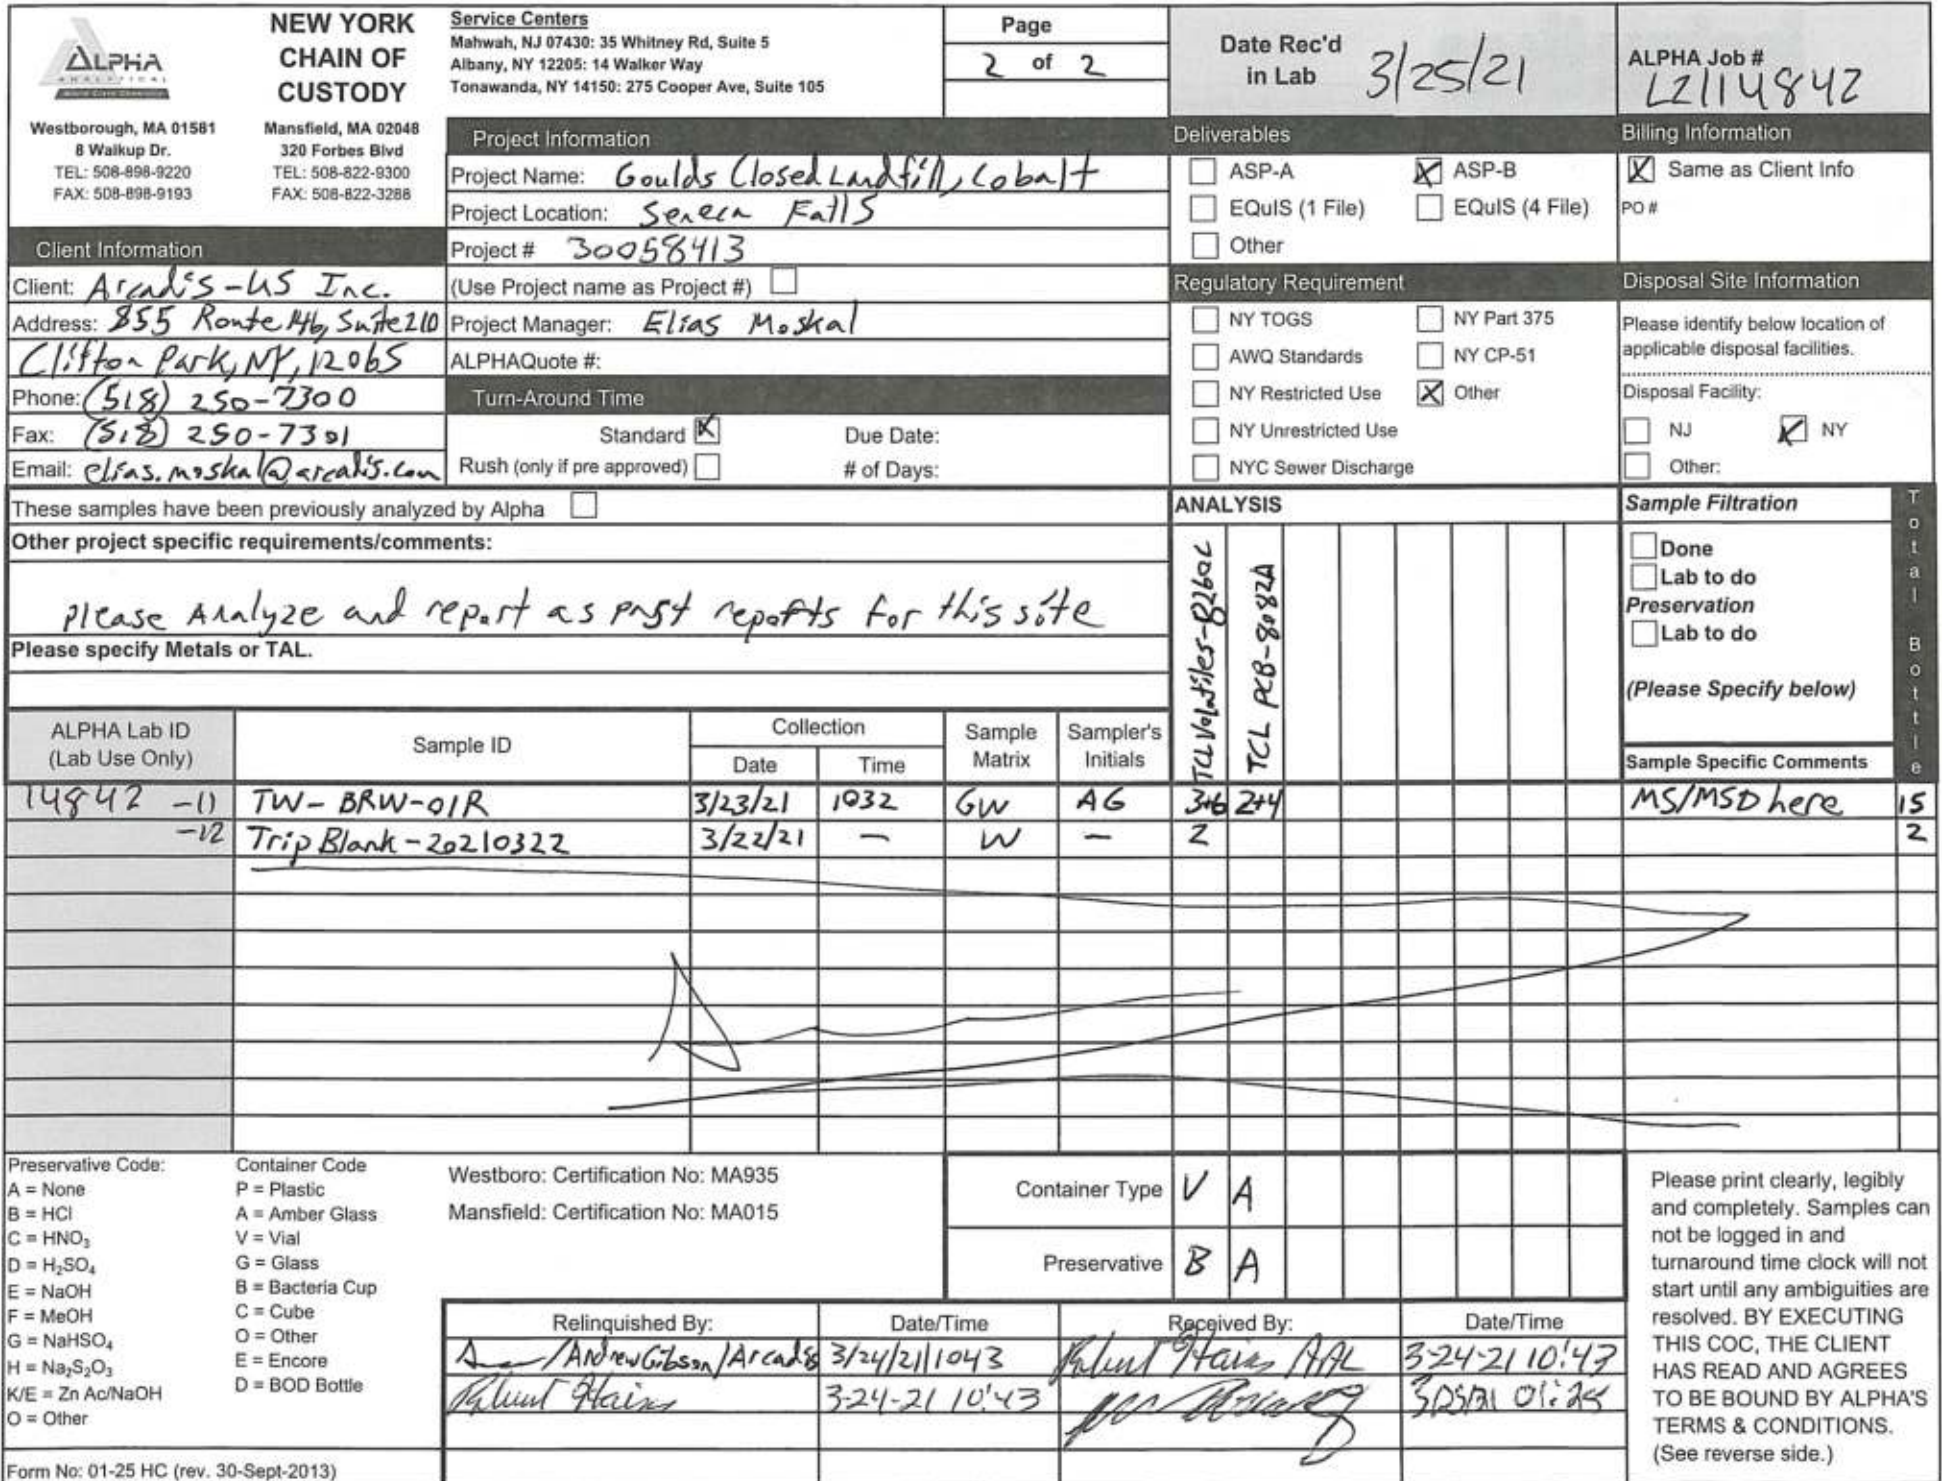 ALPHA
ANALYTICAL
World Class Chemistry
NEW YORK
CHAIN OF
CUSTODY
Westborough, MA 01581
8 Walkup Dr.
TEL: 508-898-9220
FAX: 508-898-9193
Mansfield, MA 02048
320 Forbes Blvd
TEL: 508-822-9300
FAX: 508-822-3288
Service Centers
Mahwah, NJ 07430: 35 Whitney Rd, Suite 5
Albany, NY 12205: 14 Walker Way
Tonawanda, NY 14150: 275 Cooper Ave, Suite 105
Page
2 of 2
Date Rec'd
in Lab 3/25/21
ALPHA Job #
L2114842
Client Information
Client: Arcadis-US Inc.
Address: 855 Route 146, Suite 210
Clifton Park, NY, 12065
Phone: (518) 250-7300
Fax: (518) 250-7301
Email: elias.moskal@arcadis.com
Project Information
Project Name: Goulds Closed Landfill, Cobalt
Project Location: Seneca Falls
Project # 30058413
(Use Project name as Project #)
Project Manager: Elias Moskal
ALPHAQuote #:
Turn-Around Time
Standard X Due Date:
Rush (only if pre approved) # of Days:
Deliverables
ASP-A X ASP-B
EQuIS (1 File) EQuIS (4 File)
Other
Regulatory Requirement
NY TOGS NY Part 375
AWQ Standards NY CP-51
NY Restricted Use X Other
NY Unrestricted Use
NYC Sewer Discharge
Billing Information
X Same as Client Info
PO #
Disposal Site Information
Please identify below location of
applicable disposal facilities.
Disposal Facility:
NJ X NY
Other:
These samples have been previously analyzed by Alpha
Other project specific requirements/comments:
please Analyze and report as past reports for this site
Please specify Metals or TAL.
ANALYSIS
TCL Volatiles-8260C
TCL PCB-8082A
Sample Filtration
Done
Lab to do
Preservation
Lab to do
(Please Specify below)
Total Bottle
ALPHA Lab ID
(Lab Use Only)
Sample ID
Collection
Date Time
Sample
Matrix
Sampler's
Initials
Sample Specific Comments
14842 -11 TW-BRW-01R 3/23/21 1032 GW AG 3+6 2+4 MS/MSD here 15
-12 Trip Blank-20210322 3/22/21 – W – 2 2
Preservative Code:
A = None
B = HCl
C = HNO₃
D = H₂SO₄
E = NaOH
F = MeOH
G = NaHSO₄
H = Na₂S₂O₃
K/E = Zn Ac/NaOH
O = Other
Container Code
P = Plastic
A = Amber Glass
V = Vial
G = Glass
B = Bacteria Cup
C = Cube
O = Other
E = Encore
D = BOD Bottle
Westboro: Certification No: MA935
Mansfield: Certification No: MA015
Container Type V A
Preservative B A
Relinquished By: Date/Time Received By: Date/Time
/Andrew Gibson/Arcadis 3/24/21/1043 Robert Hains AAL 3-24-21 10:43
Robert Hains 3-24-21 10:43 3/25/21 01:25
Please print clearly, legibly
and completely. Samples can
not be logged in and
turnaround time clock will not
start until any ambiguities are
resolved. BY EXECUTING
THIS COC, THE CLIENT
HAS READ AND AGREES
TO BE BOUND BY ALPHA'S
TERMS & CONDITIONS.
(See reverse side.)
Form No: 01-25 HC (rev. 30-Sept-2013)